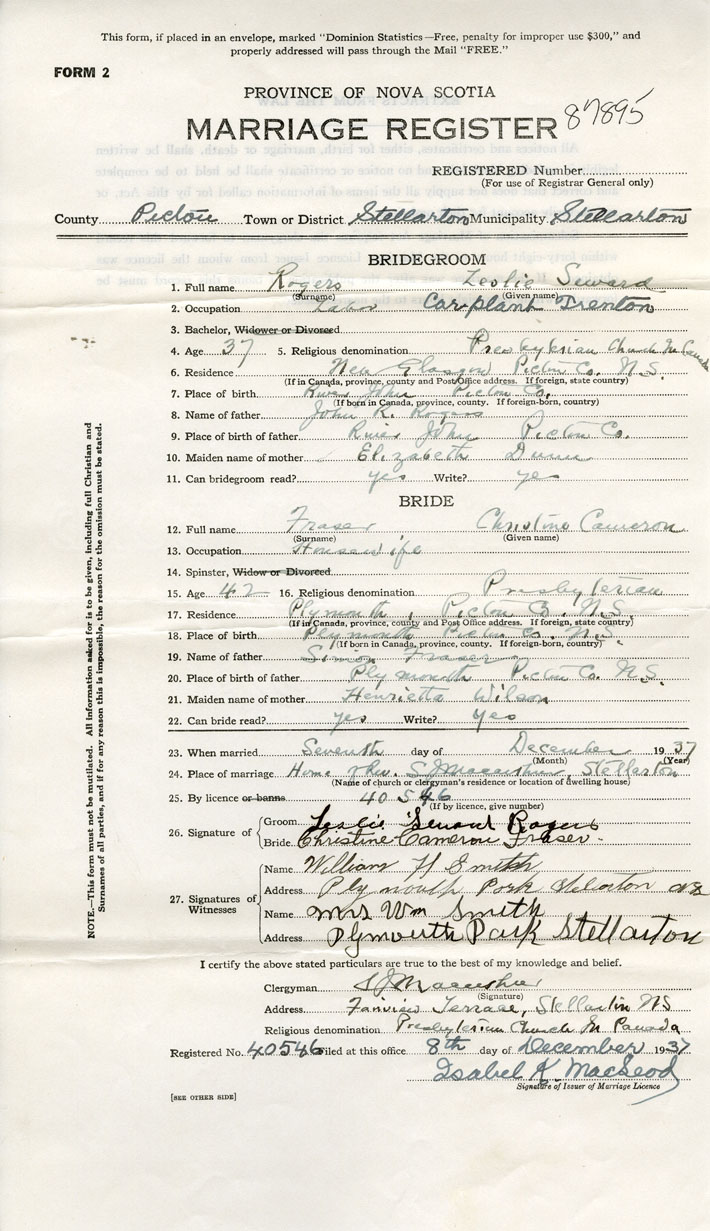 This form, if placed in an envelope, marked "Dominion Statistics—Free, penalty for improper use $300," and
properly addressed will pass through the Mail "FREE."
FORM 2
PROVINCE OF NOVA SCOTIA
MARRIAGE REGISTER 87895
REGISTERED Number
(For use of Registrar General only)
County Pictou Town or District Stellarton Municipality Stellarton
BRIDEGROOM
1. Full name Rogers Leslie Seward
(Surname) (Given name)
2. Occupation Labor Car plant Trenton
3. Bachelor, Widower or Divorced
4. Age 37 5. Religious denomination Presbyterian Church In Canada
6. Residence New Glasgow Pictou Co. N.S.
(If in Canada, province, county and Post Office address. If foreign, state country)
7. Place of birth River John Pictou Co.
(If born in Canada, province, county. If foreign-born, country)
8. Name of father John R. Rogers
9. Place of birth of father River John Pictou Co.
10. Maiden name of mother Elizabeth Dunn
11. Can bridegroom read? yes Write? yes
BRIDE
12. Full name Fraser Christine Cameron
(Surname) (Given name)
13. Occupation Housewife
14. Spinster, Widow or Divorced
15. Age 42 16. Religious denomination Presbyterian
17. Residence Plymouth, Pictou Co. N.S.
(If in Canada, province, county and Post Office address. If foreign, state country)
18. Place of birth Plymouth Pictou Co. N.S.
(If born in Canada, province, county. If foreign-born, country)
19. Name of father Simon Fraser
20. Place of birth of father Plymouth Pictou Co. N.S.
21. Maiden name of mother Henrietta Wilson
22. Can bride read? yes Write? yes
23. When married Seventh day of December 1937
(Month) (Year)
24. Place of marriage Home of Rev. Stellarton
(Name of church or clergyman's residence or location of dwelling house)
25. By licence or banns 40546
(If by licence, give number)
26. Signature of Groom Leslie Seward Rogers
Bride Christine Cameron Fraser.
27. Signatures of Witnesses
Name William H Smith
Address Plymouth Park Stellarton NS
Name Mrs Wm Smith
Address Plymouth Park Stellarton
I certify the above stated particulars are true to the best of my knowledge and belief.
Clergyman
(Signature)
Address Fairview Terrace, Stellarton NS
Religious denomination Presbyterian Church In Canada
Registered No. 40546 Filed at this office 8th day of December 1937
Isabel K. MacLeod
Signature of Issuer of Marriage Licence
[SEE OTHER SIDE]
NOTE.—This form must not be mutilated. All information asked for is to be given, including full Christian and
Surnames of all parties, and if for any reason this is impossible, the reason for the omission must be stated.